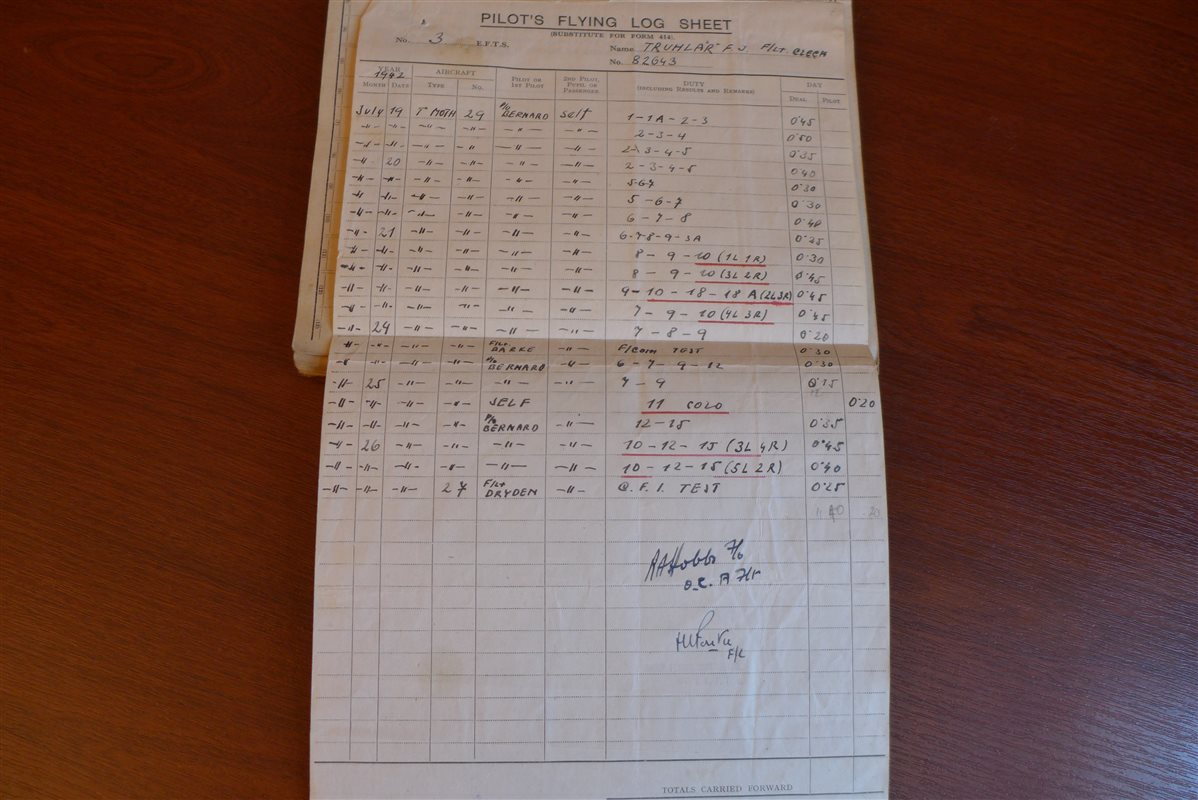 PILOT'S FLYING LOG SHEET
(SUBSTITUTE FOR FORM 414).
No. 3 E.F.T.S. Name TRUHLÁŘ F J F/LT. CZECH
No. 82643
YEAR 1942 AIRCRAFT PILOT OR 1ST PILOT 2ND PILOT, PUPIL OR PASSENGER DUTY (INCLUDING RESULTS AND REMARKS) DAY
MONTH DATE TYPE No. DUAL PILOT
July 19 T MOTH 29 P/O BERNARD self 1-1A-2-3 0'45
-"- -"- -"- -"- -"- -"- 2-3-4 0'50
-"- -"- -"- -"- -"- -"- 2-3-4-5 0'35
-"- 20 -"- -"- -"- -"- 2-3-4-5 0'40
-"- -"- -"- -"- -"- -"- 5-6-7 0'30
-"- -"- -"- -"- -"- -"- 5-6-7 0'30
-"- -"- -"- -"- -"- -"- 6-7-8 0'40
-"- 21 -"- -"- -"- -"- 6-7-8-9-3A 0'25
-"- -"- -"- -"- -"- -"- 8-9-10 (1L 1R) 0'30
-"- -"- -"- -"- -"- -"- 8-9-10 (3L 2R) 0'45
-"- -"- -"- -"- -"- -"- 9-10-18-18A (2L 3R) 0'45
-"- -"- -"- -"- -"- -"- 7-9-10 (4L 3R) 0'45
-"- 24 -"- -"- -"- -"- 7-8-9 0'20
-"- -"- -"- -"- F/Lt BARKE -"- F/Com TEST 0'30
-"- -"- -"- -"- P/O BERNARD -"- 6-7-9-12 0'30
-"- 25 -"- -"- -"- -"- 7-9 0'15
-"- -"- -"- -"- SELF 11 SOLO 0'20
-"- -"- -"- -"- P/O BERNARD -"- 12-15 0'35
-"- 26 -"- -"- -"- -"- 10-12-15 (3L 4R) 0'45
-"- -"- -"- -"- -"- -"- 10-12-15 (5L 2R) 0'40
-"- -"- -"- 27 F/Lt DRYDEN -"- Q.F.I. TEST 0'25
11 40 .20
RAHobbs F/O
O.C. A Flt
F/L
TOTALS CARRIED FORWARD